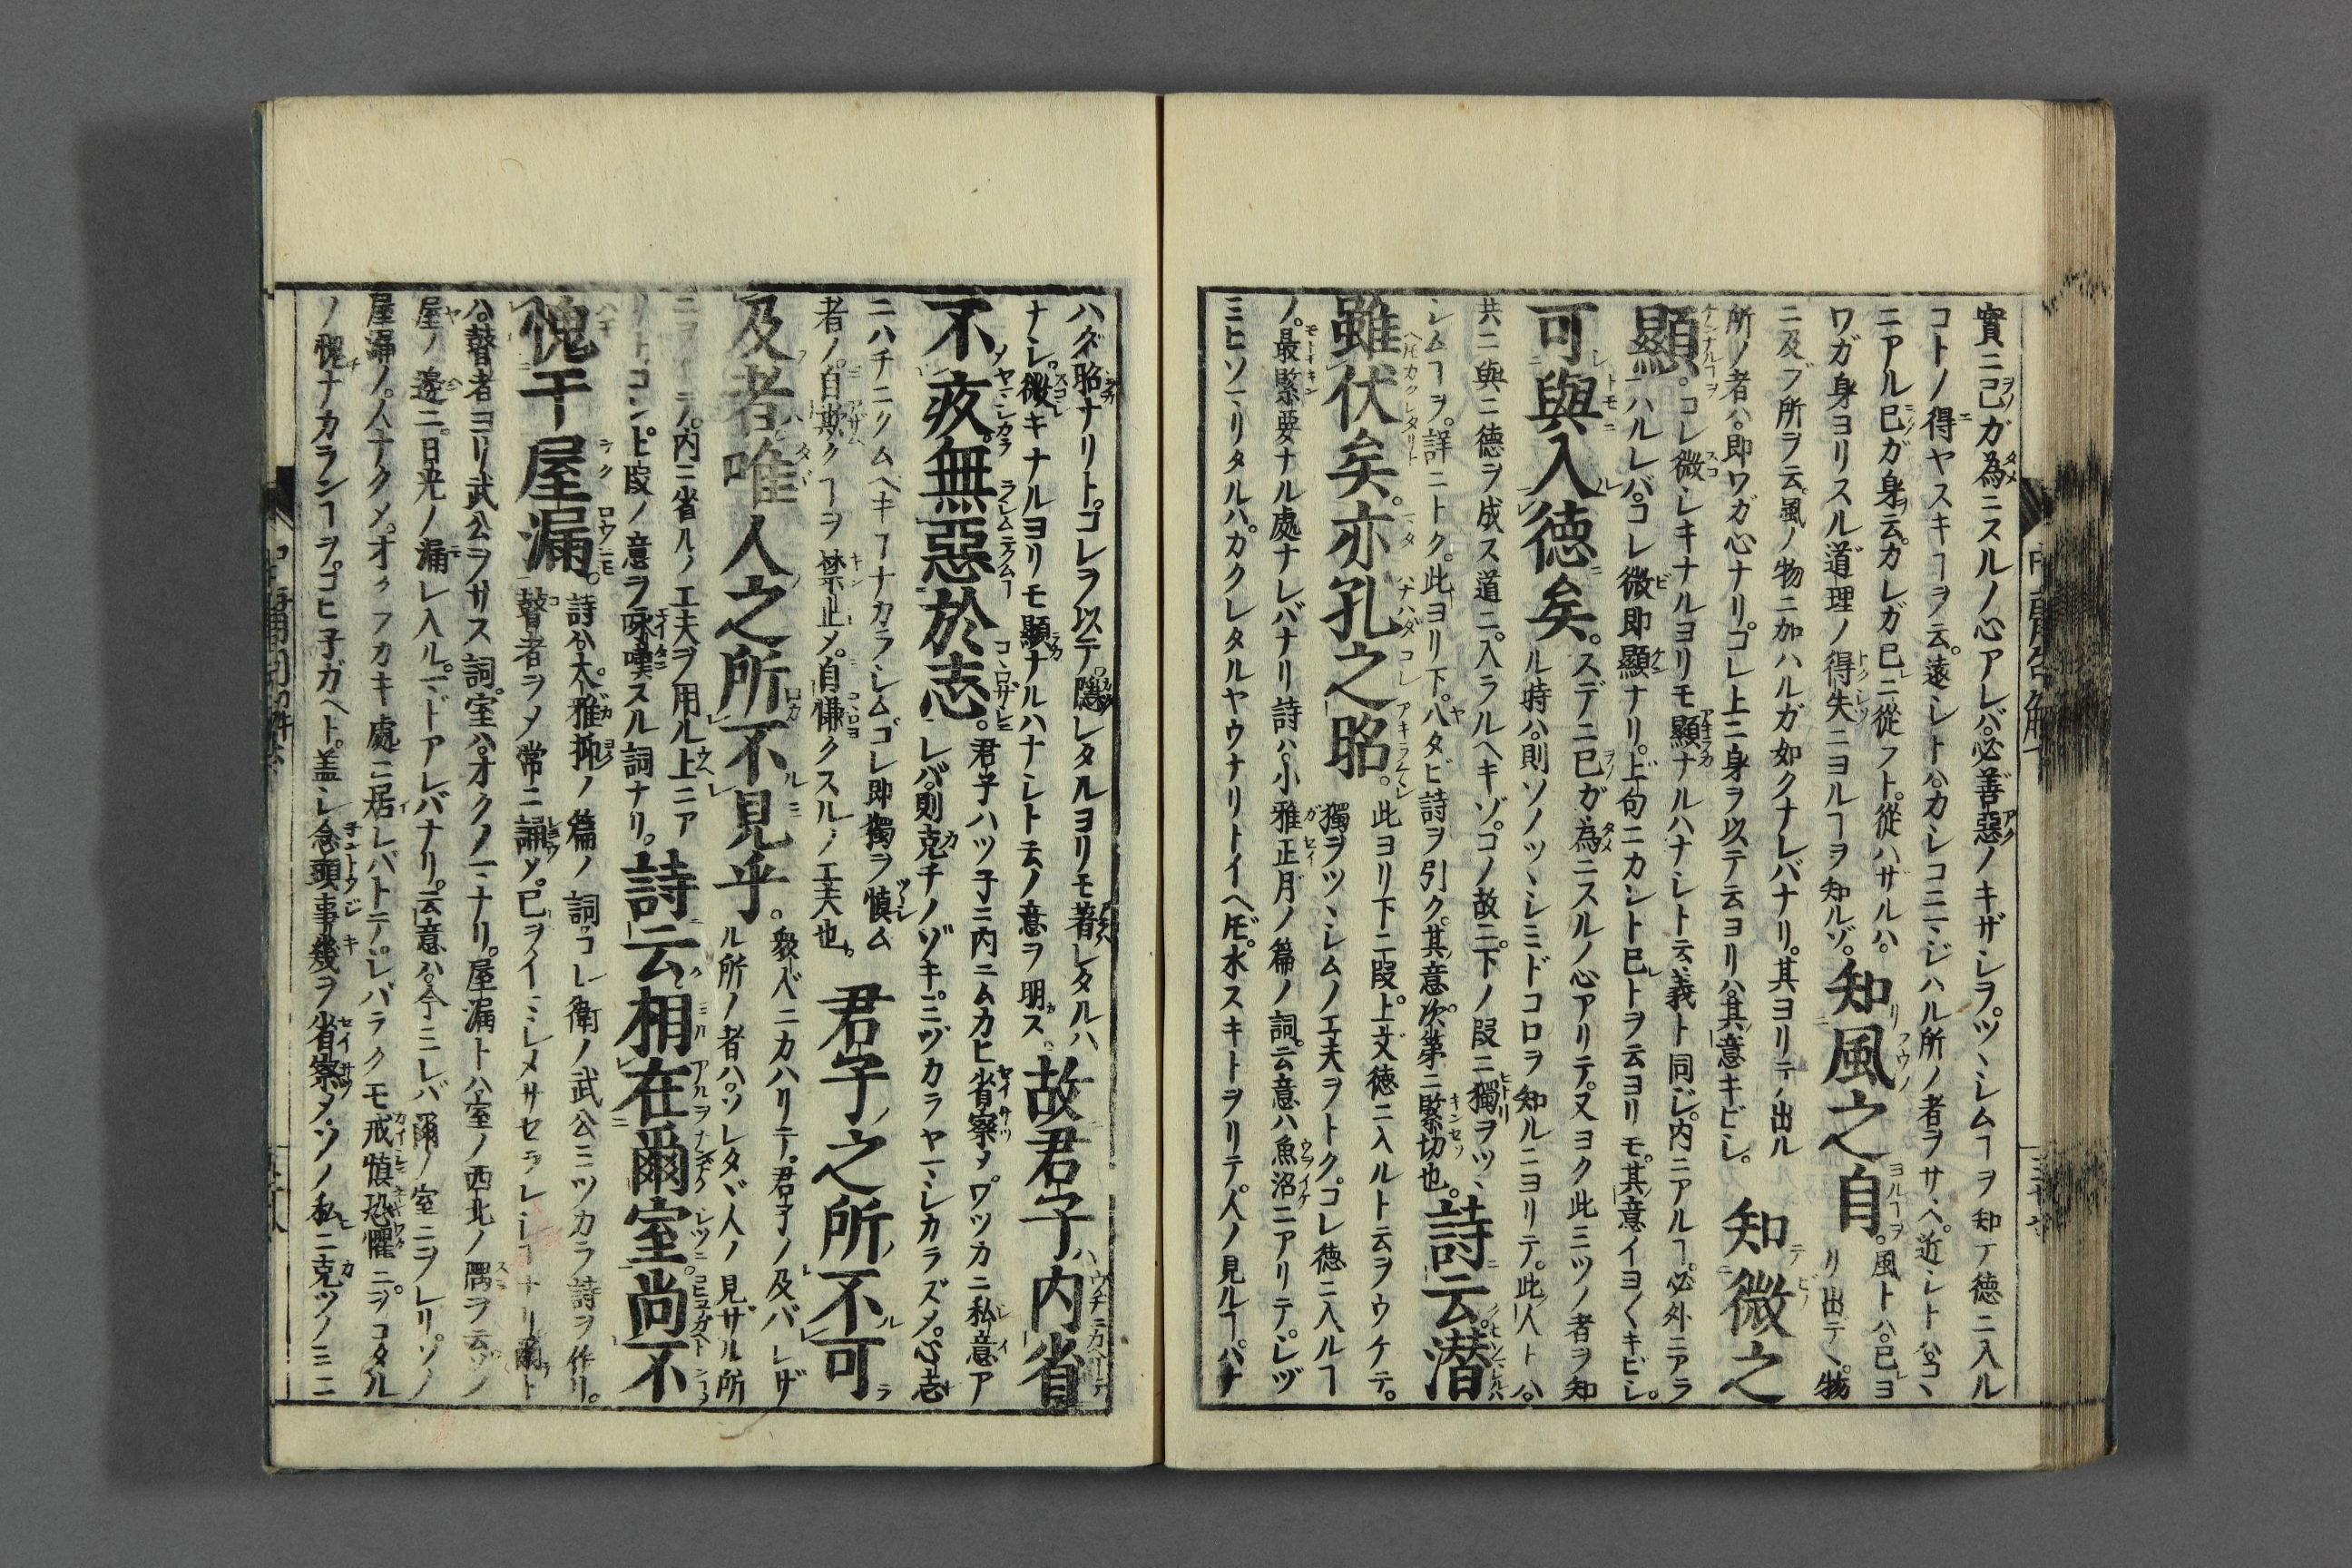 實ニ己ガ為ニスルノ心アレバ。必善惡ノキザシヲ。ツヽシムヿヲ知テ德ニ入ル
コトノ得ヤスキヿヲ云。遠シトハ。カシコニマジハル所ノ者ヲサヘ。近シトハ。コヽ
ニアル己ガ身ヲ云。カレガ己ニ從フト。從ハザルハ。
ワガ身ヨリスル道理ノ得失ニヨルヿヲ知ルゾ。知風之自。風トハ。己ヨ
リ出デヽ。物
ニ及ブ所ヲ云。風ノ物ニ加ハルガ如クナレバナリ。其ヨリテノ出ル
所ノ者ハ。即ワガ心ナリ。コレ上ニ身ヲ以テ云ヨリハ。其意キビシ。知微之
顯。コレ微シキナルヨリモ顯ナルハナシト云義ト同ジ。内ニアルヿ。必外ニアラ
ハルレバ。コレ微即顯ナリ。上句ニカレト己トヲ云ヨリモ。其意イヨ〱キビシ。
可與入德矣。スデニ己ガ為ニスルノ心アリテ。又ヨク此三ツノ者ヲ知
ル時ハ。則ソノツヽシミドコロヲ知ルニヨリテ。此人トハ。
共ニ與ニ德ヲ成ス道ニ。入ラルヘキゾ。コノ故ニ。下ノ段ニ獨ヲツヽ
シムヿヲ。詳ニトク。此ヨリ下。八タビ詩ヲ引ク。其意次第ニ緊切也。詩云。潜
雖伏矣。亦孔之昭。此ヨリ下二段。上文德ニ入ルト云ヲウケテ。
獨ヲツヽシムノ工夫ヲトク。コレ德ニ入ルヿ
ノ。最緊要ナル處ナレバナリ詩ハ。小雅正月ノ篇ノ詞。云意ハ魚沼ニアリテ。シヅ
ミヒソマリタルハ。カクレタルヤウナリトイヘ𪜈。水スキトヲリテ。人ノ見ルヿ。ハナ
ハダ昭ナリト。コレヲ以テ。隱レタルヨリモ著レタルハ
ナシ。微キナルヨリモ顯ナルハナシト云ノ意ヲ明ス。故君子内省
不疚。無惡於志。君子ハツ子ニ内ニムカヒ省察メ。ワヅカニ私意ア
レバ。則克チノゾキ。ミヅカラヤマシカラズメ。心志
ニハヂニクムベキヿナカラシム。コレ即獨ヲ慎ム
者ノ。自欺クヿヲ禁止メ。自慊クスルノ工夫也。君子之所不可
及者。唯人之所不見乎。衆人ニカハリテ。君子ノ及バレザ
ル所ノ者ハ。ソレタヾ人ノ見ザル所
内ニ省ルノ工夫ヲ用ル上ニア
段ノ意ヲ咏嘆スル詞ナリ。詩云。相在爾室。尚不
愧于屋漏。詩ハ。大雅抑ノ篇ノ詞。コレ衛ノ武公ミツカラ詩ヲ作リ。
瞽者ヲメ常ニ誦メ。己ヲイマシメサセラレシヿナリ爾ト
ハ。瞽者ヨリ武公ヲサス詞。室ハ。オクノマナリ。屋漏トハ室ノ西北ノ隅ヲ云。ソノ
屋ノ邊ニ。日光ノ漏レ入ル。マドアレバナリ。云意ハ。今ニレバ爾ノ室ニヲレリ。ソノ
屋漏ノ。人ナクメ。オクフカキ處ニ居レバトテ。シバラクモ戒慎恐懼ニ。ヲコタル
ノ愧ナカランヿヲ。コヒ子ガヘト。盖シ念頭事幾ヲ省察メ。ソノ私ニ克ツノミニ